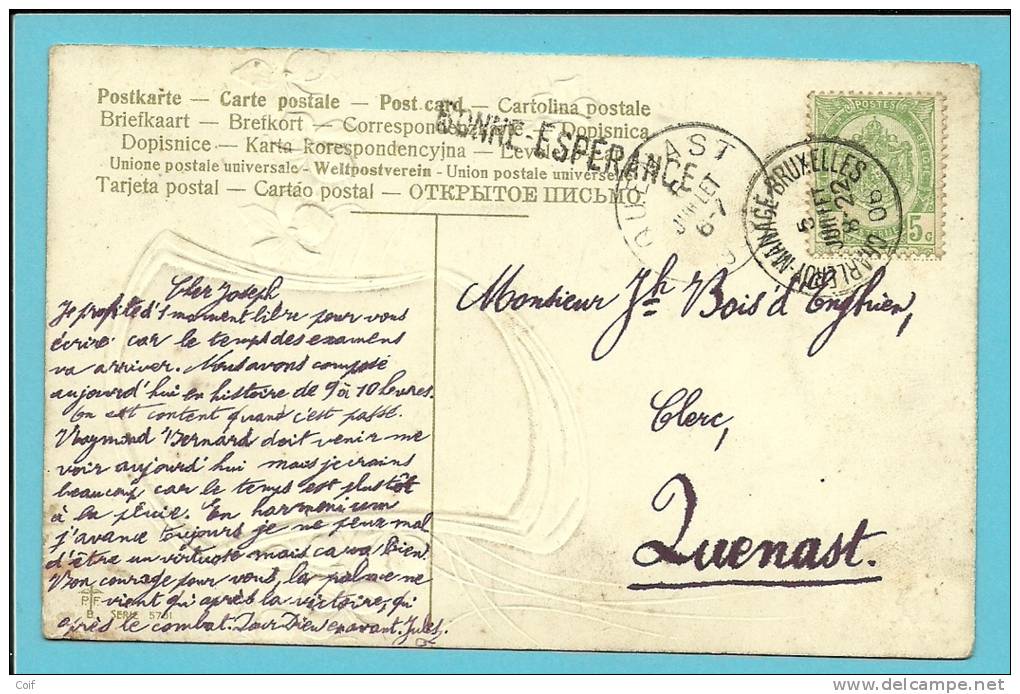 Postkarte — Carte postale — Post card — Cartolina postale
Briefkaart — Brefkort — Correspondenzkarte — Dopisnica
Dopisnice — Karta korespondencyjna — Levelező
Unione postale universale - Weltpostverein - Union postale universelle
Tarjeta postal — Cartão postal — ОТКРЫТОЕ ПИСЬМО.
BONNE-ESPERANCE
QUENAST
JUILLET
6-7
CHARLEROY-MANAGE-BRUXELLES
5
JUILLET
8 22
06
POSTES
5c
Cher Joseph
Je profite d'1 moment libre pour vous
écrire car le temps des examens
va arriver. Nous avons composé
aujourd'hui en histoire de 9 à 10 heures.
On est content quand c'est passé.
Raymond Bernard doit venir me
voir aujourd'hui mais je crains
beaucoup car le temps est plustôt
à la pluie. En harmonium
j'avance toujours je ne peur mal
d'être un virtuose mais ca va bien.
Bon courage pour vous, la palme ne
vient qu'après la victoire, qu'
après le combat. Pour Dieu en avant. Jules.
Monsieur Jh Bois d'Enghien,
Clerc,
Quenast.
P F
B
SERIE 5731
Coif
http://www.delcampe.net